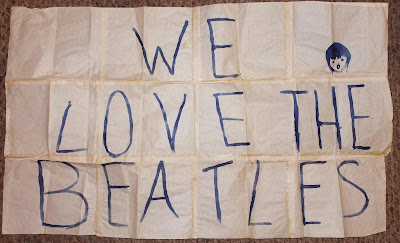 WE
LOVE THE
BEATLES